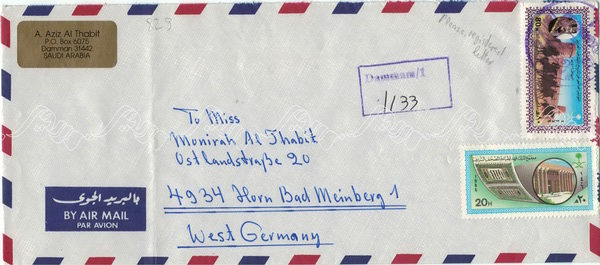 A. Aziz Al Thabit
P.O. Box 6075
Dammam 31442
SAUDI ARABIA
829
Please, registered
letter
Dammam/1
1133
To Miss
Monirah Al Thabit
Ostlandstraße 20
4934 Horn Bad Meinberg 1
West Germany
بالبريد الجوي
BY AIR MAIL
PAR AVION
20H
٢٠